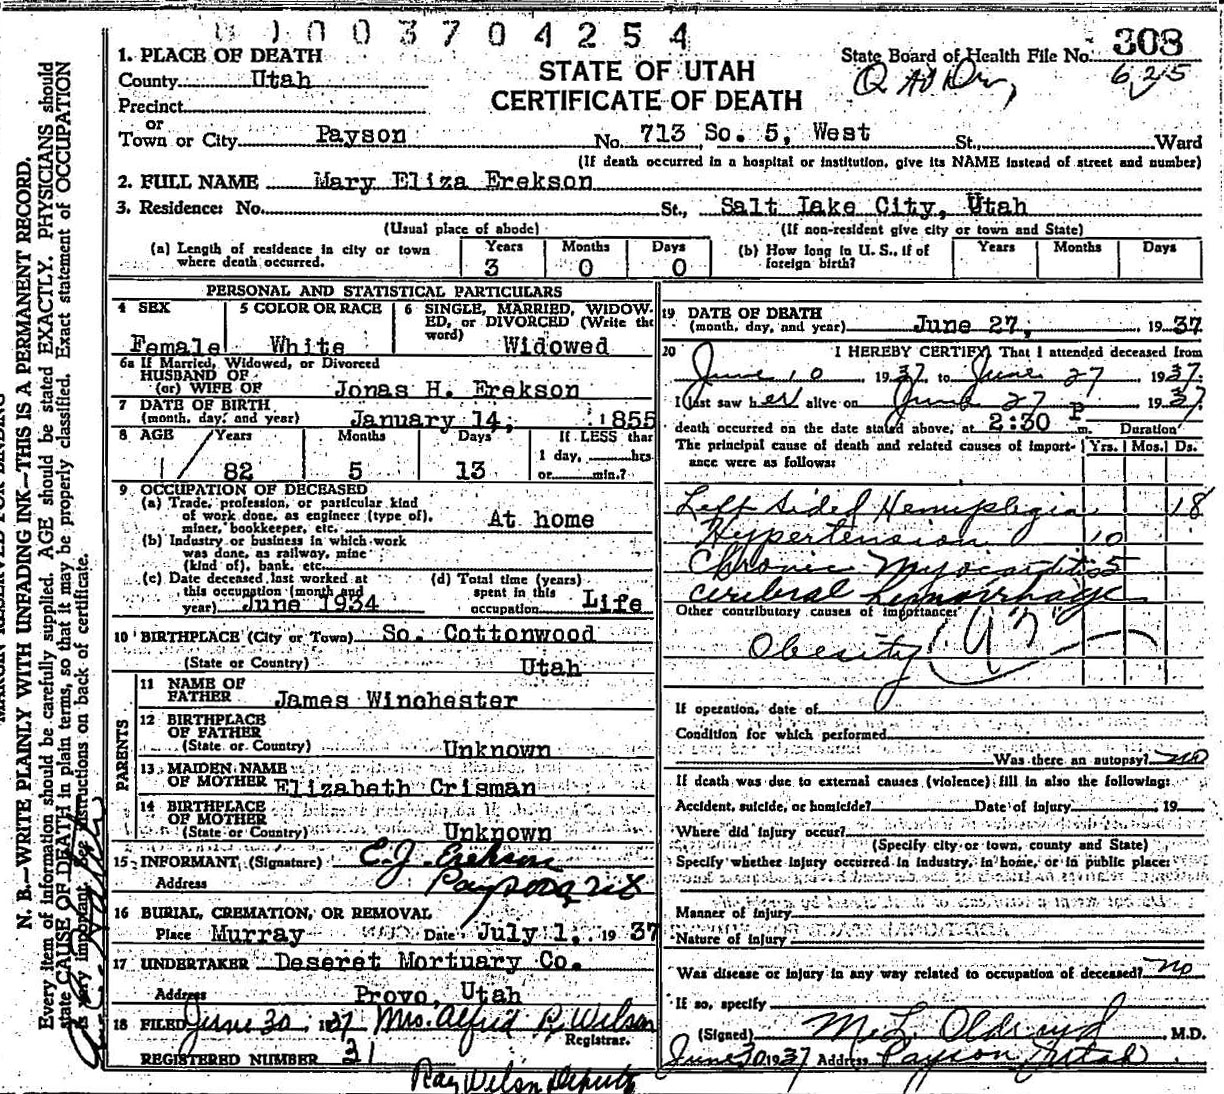 0 1 0 0 3 7 0 4 2 5 4
1. PLACE OF DEATH
County Utah
Precinct
or
Town or City Payson No. 713 So. 5, West St., Ward
(If death occurred in a hospital or institution, give its NAME instead of street and number)
STATE OF UTAH
CERTIFICATE OF DEATH
State Board of Health File No. 308
625
2. FULL NAME Mary Eliza Erekson
3. Residence: No. St., Salt Lake City, Utah
(Usual place of abode) (If non-resident give city or town and State)
(a) Length of residence in city or town where death occurred. Years 3 Months 0 Days 0
(b) How long in U. S., if of foreign birth? Years Months Days
PERSONAL AND STATISTICAL PARTICULARS
4 SEX Female
5 COLOR OR RACE White
6 SINGLE, MARRIED, WIDOWED, or DIVORCED (Write the word) Widowed
6a If Married, Widowed, or Divorced
HUSBAND OF
(or) WIFE OF Jonas H. Erekson
7 DATE OF BIRTH
(month, day, and year) January 14, 1855
8 AGE Years 82 Months 5 Days 13 If LESS than 1 day, hrs or min.?
9 OCCUPATION OF DECEASED
(a) Trade, profession, or particular kind
of work done, as engineer (type of),
miner, bookkeeper, etc. At home
(b) Industry or business in which work
was done, as railway, mine
(kind of), bank, etc.
(c) Date deceased last worked at
this occupation (month and
year) June 1934
(d) Total time (years)
spent in this
occupation Life
10 BIRTHPLACE (City or Town) So. Cottonwood
(State or Country) Utah
PARENTS
11 NAME OF
FATHER James Winchester
12 BIRTHPLACE
OF FATHER
(State or Country) Unknown
13 MAIDEN NAME
OF MOTHER Elizabeth Crisman
14 BIRTHPLACE
OF MOTHER
(State or Country) Unknown
15 INFORMANT (Signature) E. J. Erekson
Address Payson
16 BURIAL, CREMATION, OR REMOVAL
Place Murray Date July 1, 1937
17 UNDERTAKER Deseret Mortuary Co.
Address Provo, Utah
18 FILED June 30 1937 Mrs. Alfred R. Wilson
Registrar.
REGISTERED NUMBER 31
Ray Wilson Deputy
19 DATE OF DEATH
(month, day, and year) June 27, 1937
20 I HEREBY CERTIFY, That I attended deceased from
June 10 1937 to June 27, 1937
I last saw her alive on June 27 1937
death occurred on the date stated above, at 2:30 P m. Duration
The principal cause of death and related causes of importance were as follows: Yrs. Mos. Ds.
Left Sided Hemiplegia 18
Hypertension 10
Chronic Myocarditis 5
cerebral hemorrhage
Other contributory causes of importance:
Obesity
If operation, date of
Condition for which performed
Was there an autopsy? no
If death was due to external causes (violence) fill in also the following:
Accident, suicide, or homicide? Date of injury 19
Where did injury occur?
(Specify city or town, county and State)
Specify whether injury occurred in industry, in home, or in public place:
Manner of injury
Nature of injury
Was disease or injury in any way related to occupation of deceased? no
If so, specify
(Signed) M. L. Oldroyd M.D.
June 30 1937 Address Payson Utah
N. B.—WRITE PLAINLY WITH UNFADING INK—THIS IS A PERMANENT RECORD.
Every item of information should be carefully supplied. AGE should be stated EXACTLY. PHYSICIANS should
state CAUSE OF DEATH in plain terms, so that it may be properly classified. Exact statement of OCCUPATION
is very important. See instructions on back of certificate.